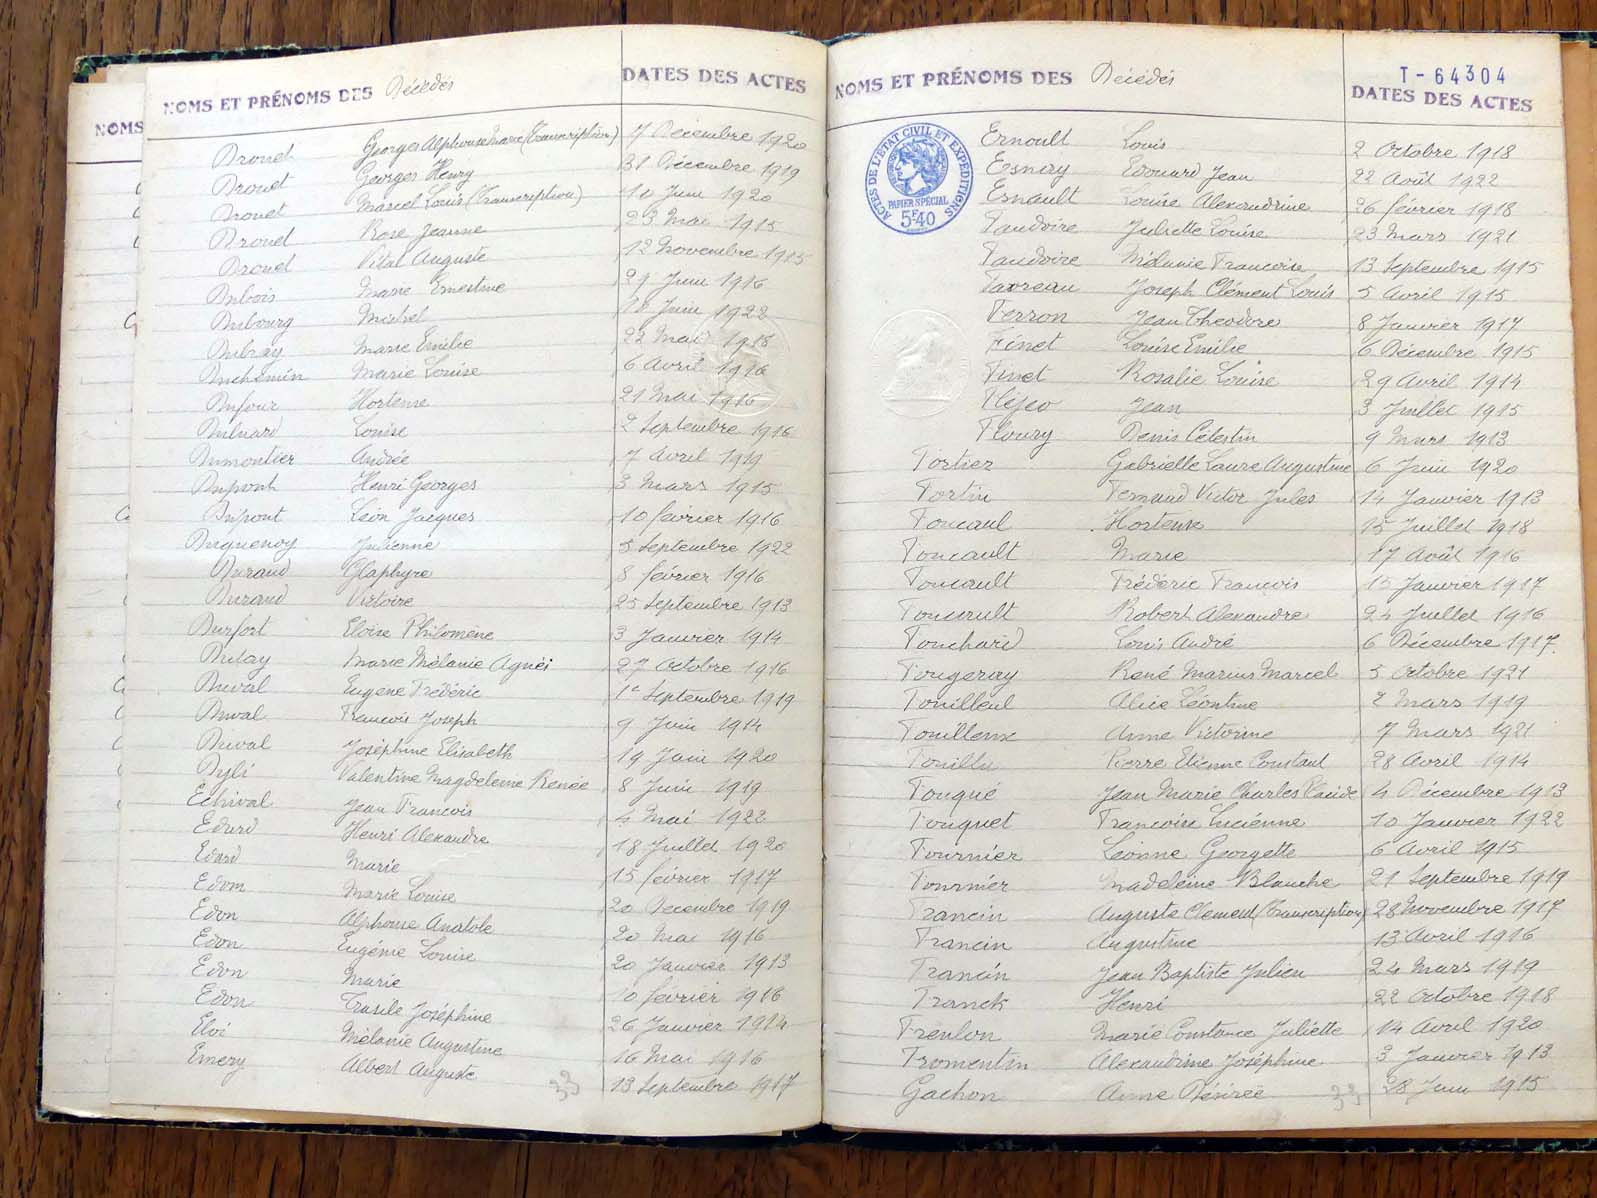 NOMS
NOMS ET PRÉNOMS DES Décédés DATES DES ACTES
Drouet Georges Alphonse Marie (Transcription) 7 Décembre 1920
Drouet Georges Henry 31 Décembre 1919
Drouet Marcel Louis (Transcription) 10 Juin 1920
Drouet Rose Jeanne 23 Mai 1915
Drouet Vital Auguste 12 Novembre 1915
Dubois Marie Ernestine 29 Juin 1916
Dubourg Michel 10 Juin 1922
Dubray Marie Emilie 22 Mai 1918
Duchemin Marie Louise 6 Avril 1916
Dufour Hortense 21 Mai 1916
Louise 2 Septembre 1916
Dumontier Andrée 7 Avril 1919
Dupont Henri Georges 3 Mars 1915
Dupont Léon Jacques 10 février 1916
Duquenoy Julienne 5 Septembre 1922
Durand Glaphyre 8 février 1916
Durand Victoire 25 Septembre 1913
Durfort Eloïse Philomène 3 Janvier 1914
Dutay Marie Mélanie Agnès 27 Octobre 1916
Duval Eugène Frédéric 1er Septembre 1919
Duval Francois Joseph 9 Juin 1914
Duval Joséphine Elisabeth 19 Juin 1920
Dyli Valentine Magdeleine Renée 8 Juin 1919
Echival Jean Francois 4 Mai 1922
Edard Henri Alexandre 18 Juillet 1920
Edard Marie 15 février 1917
Edom Marie Louise 20 Decembre 1919
Edon Alphonse Anatole 20 Mai 1916
Edon Eugénie Louise 20 Janvier 1913
Edon Marie 10 février 1916
Edon Trasile Joséphine 26 Janvier 1914
Eloi Mélanie Augustine 16 Mai 1916
Emery Albert Auguste 13 Septembre 1917
33
T-64304
NOMS ET PRÉNOMS DES Décédés DATES DES ACTES
ACTES DE L'ETAT CIVIL ET EXPEDITIONS
PAPIER SPÉCIAL
5F40
Ernoult Louis 2 Octobre 1918
Esnay Edouard Jean 22 Août 1922
Esnault Louise Alexandrine 26 février 1918
Faudoire Juliette Louise 23 Mars 1921
Faudoire Mélanie Francoise 13 Septembre 1915
Favreau Joseph Clément Louis 5 Avril 1915
Ferron Jean Théodore 8 Janvier 1917
Finet Louise Emilie 6 Décembre 1915
Finet Rosalie Louise 29 Avril 1914
Fléjeo Jean 3 Juillet 1915
Floury Denis Célestin 9 Mars 1913
Fortier Gabrielle Laure Augustine 6 Juin 1920
Fortin Fernand Victor Jules 14 Janvier 1913
Foucaul Hortense 15 Juillet 1918
Foucault Marie 17 Août 1916
Foucault Frédéric Francois 15 Janvier 1917
Foucault Robert Alexandre 24 Juillet 1916
Fouchard Louis André 6 Décembre 1917.
Fougeray René Marius Marcel 5 Octobre 1921
Fouilleul Alice Léontine 2 Mars 1919
Fouilleux Anne Victorine 7 Mars 1921
Pierre Etienne Constant 28 Avril 1914
Fouqué Jean Marie Charles Placide 4 Décembre 1913
Fouquet Francoise Lucienne 10 Janvier 1922
Fournier Léonne Georgette 6 Avril 1915
Fournier Madeleine Blanche 21 Septembre 1919
Francin Auguste Clement (Transcription) 28 Novembre 1917
Francin Augustine 13 Avril 1916
Francin Jean Baptiste Julien 24 Mars 1919
Franck Henri 22 Octobre 1918
Frenlon Marie Constance Juliette 14 Avril 1920
Fromentin Alexandrine Joséphine 3 Janvier 1913
Gachon Anne Désirée 28 Juin 1915
33